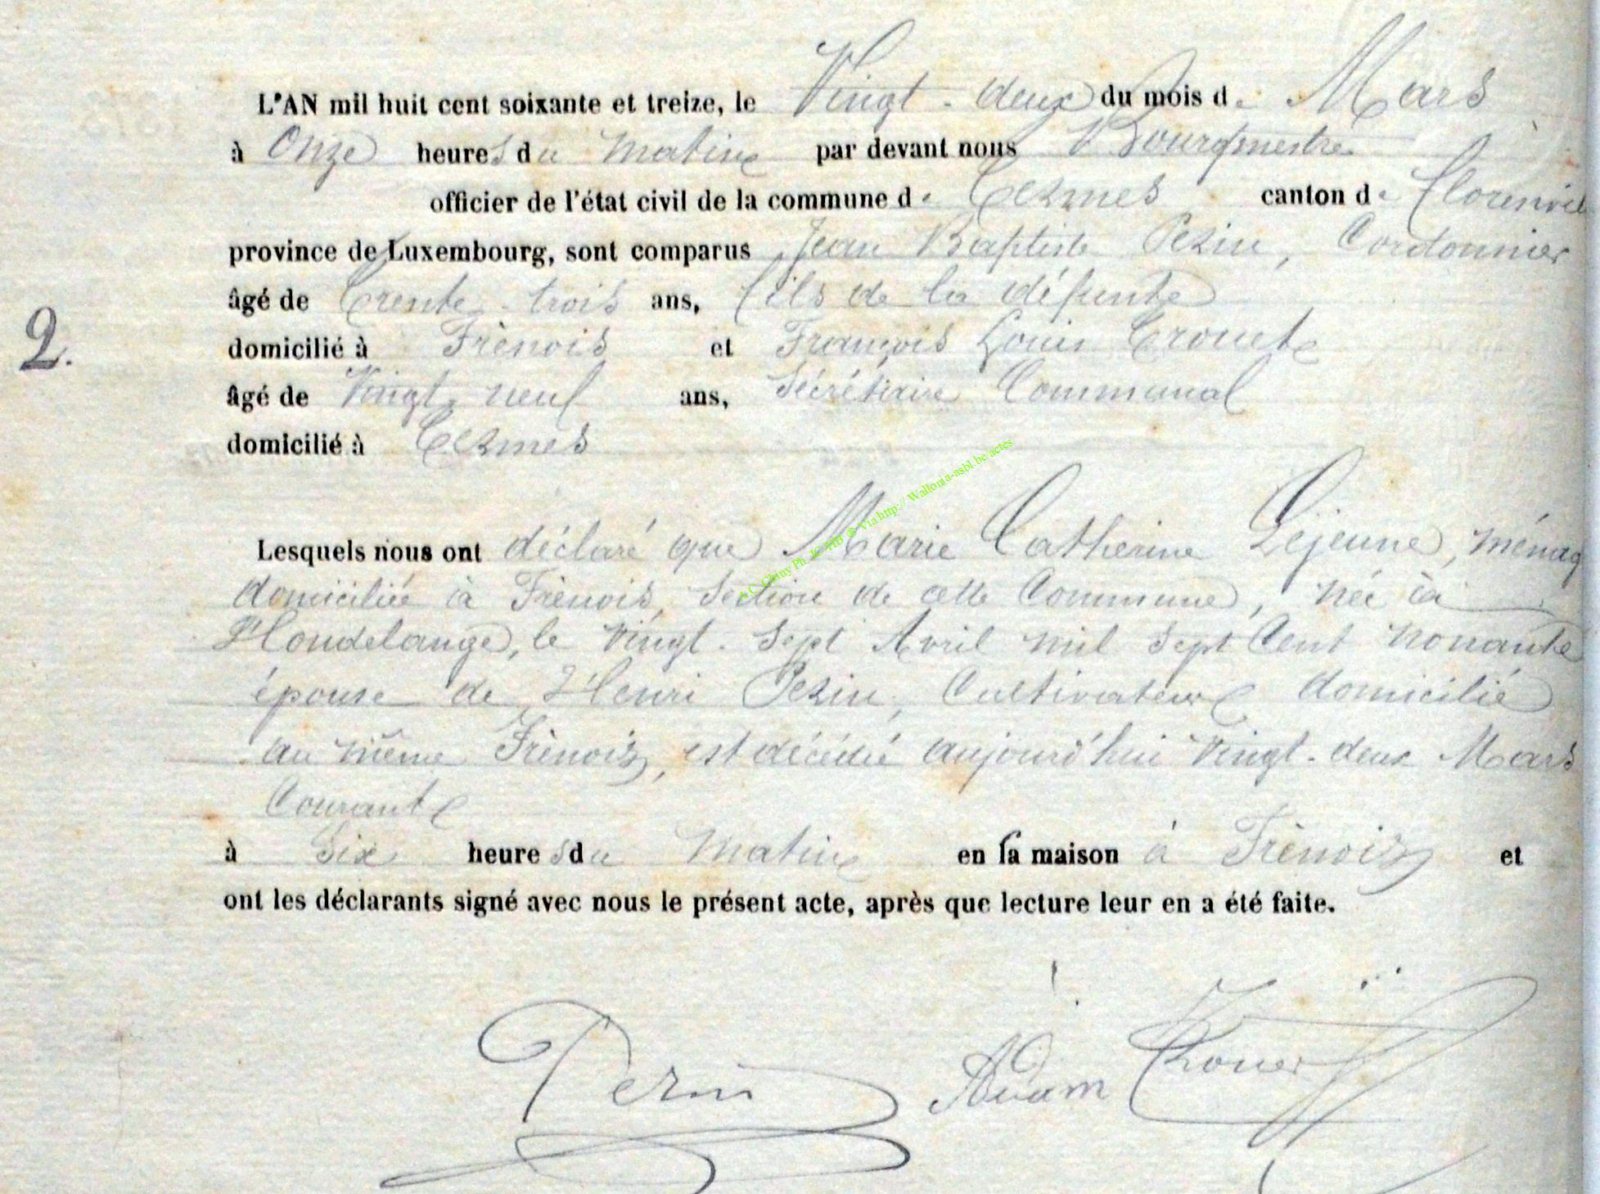 L'AN mil huit cent soixante et treize, le Vingt-deux du mois de Mars
à Onze heures du Matin par devant nous Bourgmestre
officier de l'état civil de la commune de Termes canton de Florenvil
province de Luxembourg, sont comparus Jean Baptiste Pezin, Cordonnier
âgé de trente-trois ans, fils de la défunte
2. domicilié à Frènois et François Louis
âgé de Vingt neuf ans, Sécrétaire Communal
domicilié à Termes
Lesquels nous ont déclaré que Marie Catherine Lejeune, ménag
domiciliée à Frènois, Section de cette Commune, née à
Hondelange, le Vingt-Sept Avril mil Sept Cent nonante
épouse de Henri Pezin, Cultivateur domicilié
au même Frènois, est décédée aujourd'hui Vingt-deux Mars
Courant
à Six heures du Matin en sa maison à Frènois et
ont les déclarants signé avec nous le présent acte, après que lecture leur en a été faite.
Pezin Adam